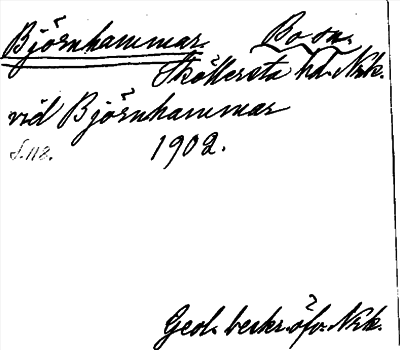 Björnhammar. Bo sn.
Sköllersta hd. Nrk.
vid Björnhammar
s. 112. 1902.
Geol. beskr. öfv. Nrk.